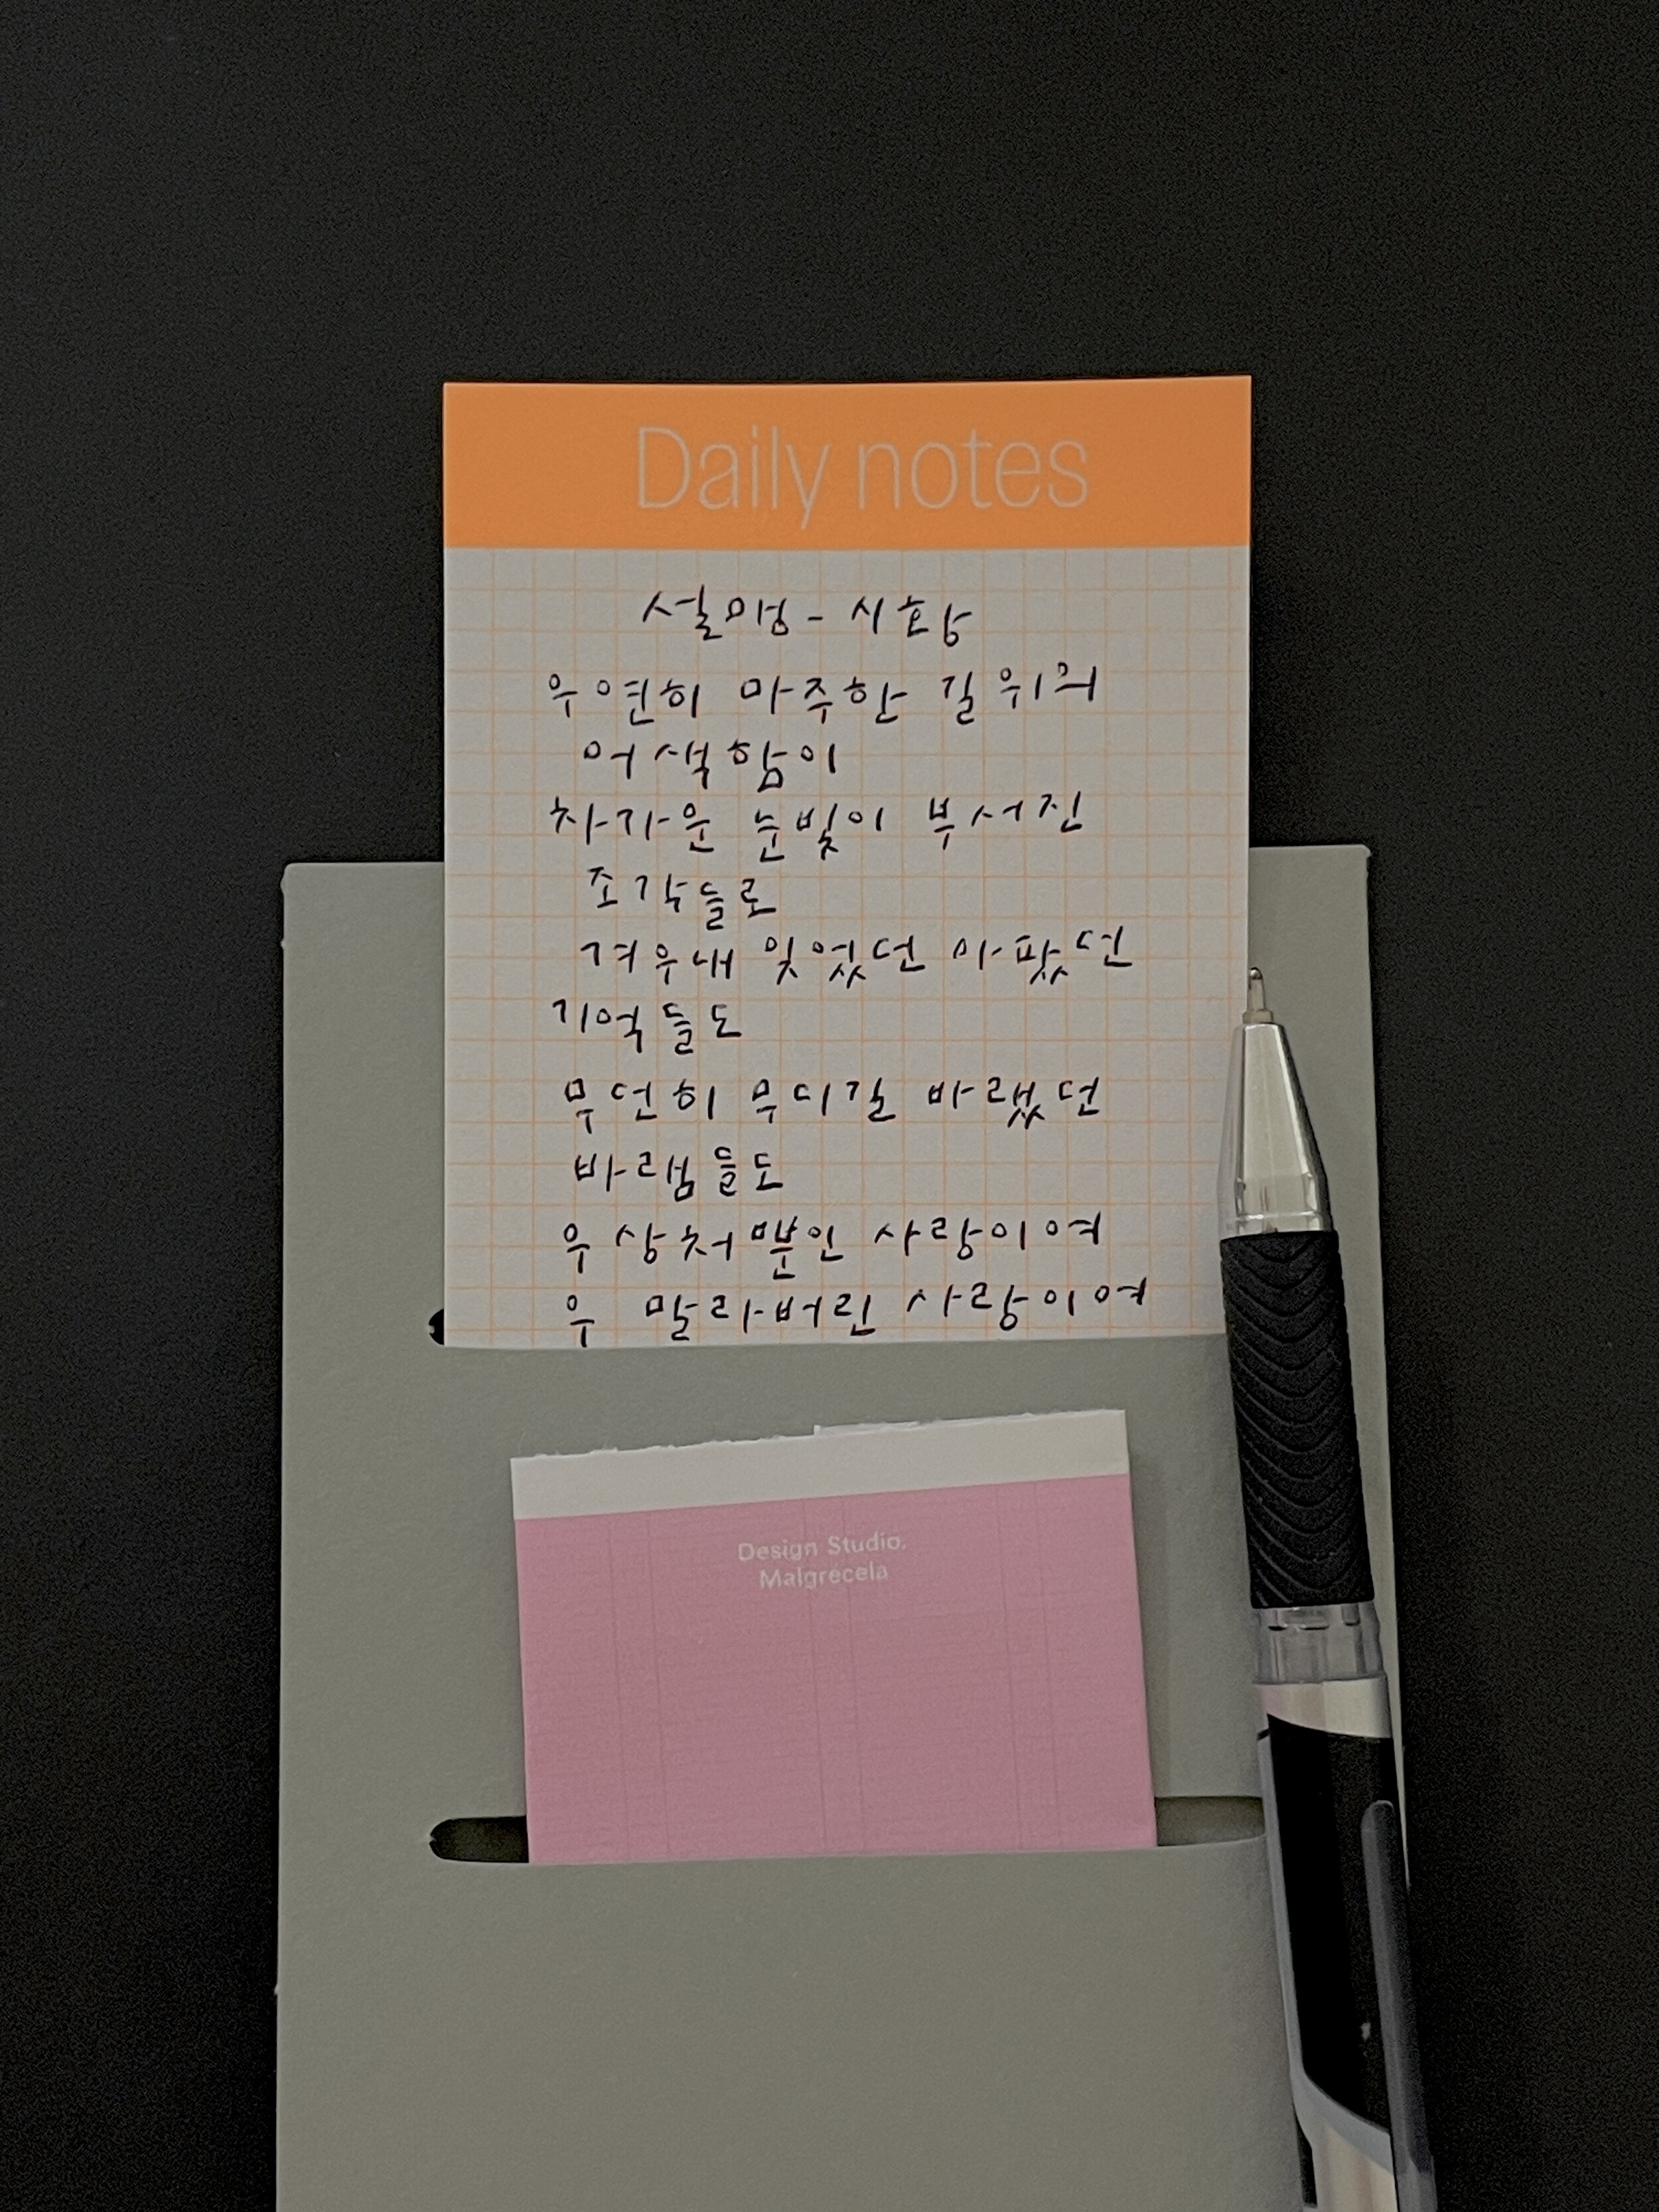 Daily notes
설맹 - 시황
우연히 마주한 길위의
어색함이
차가운 눈빛이 부서진
조각들로
겨우내 잊었던 아팠던
기억들도
무던히 무디길 바랬던
바램들도
우 상처뿐인 사랑이여
우 말라버린 사랑이여
Design Studio.
Malgrecela